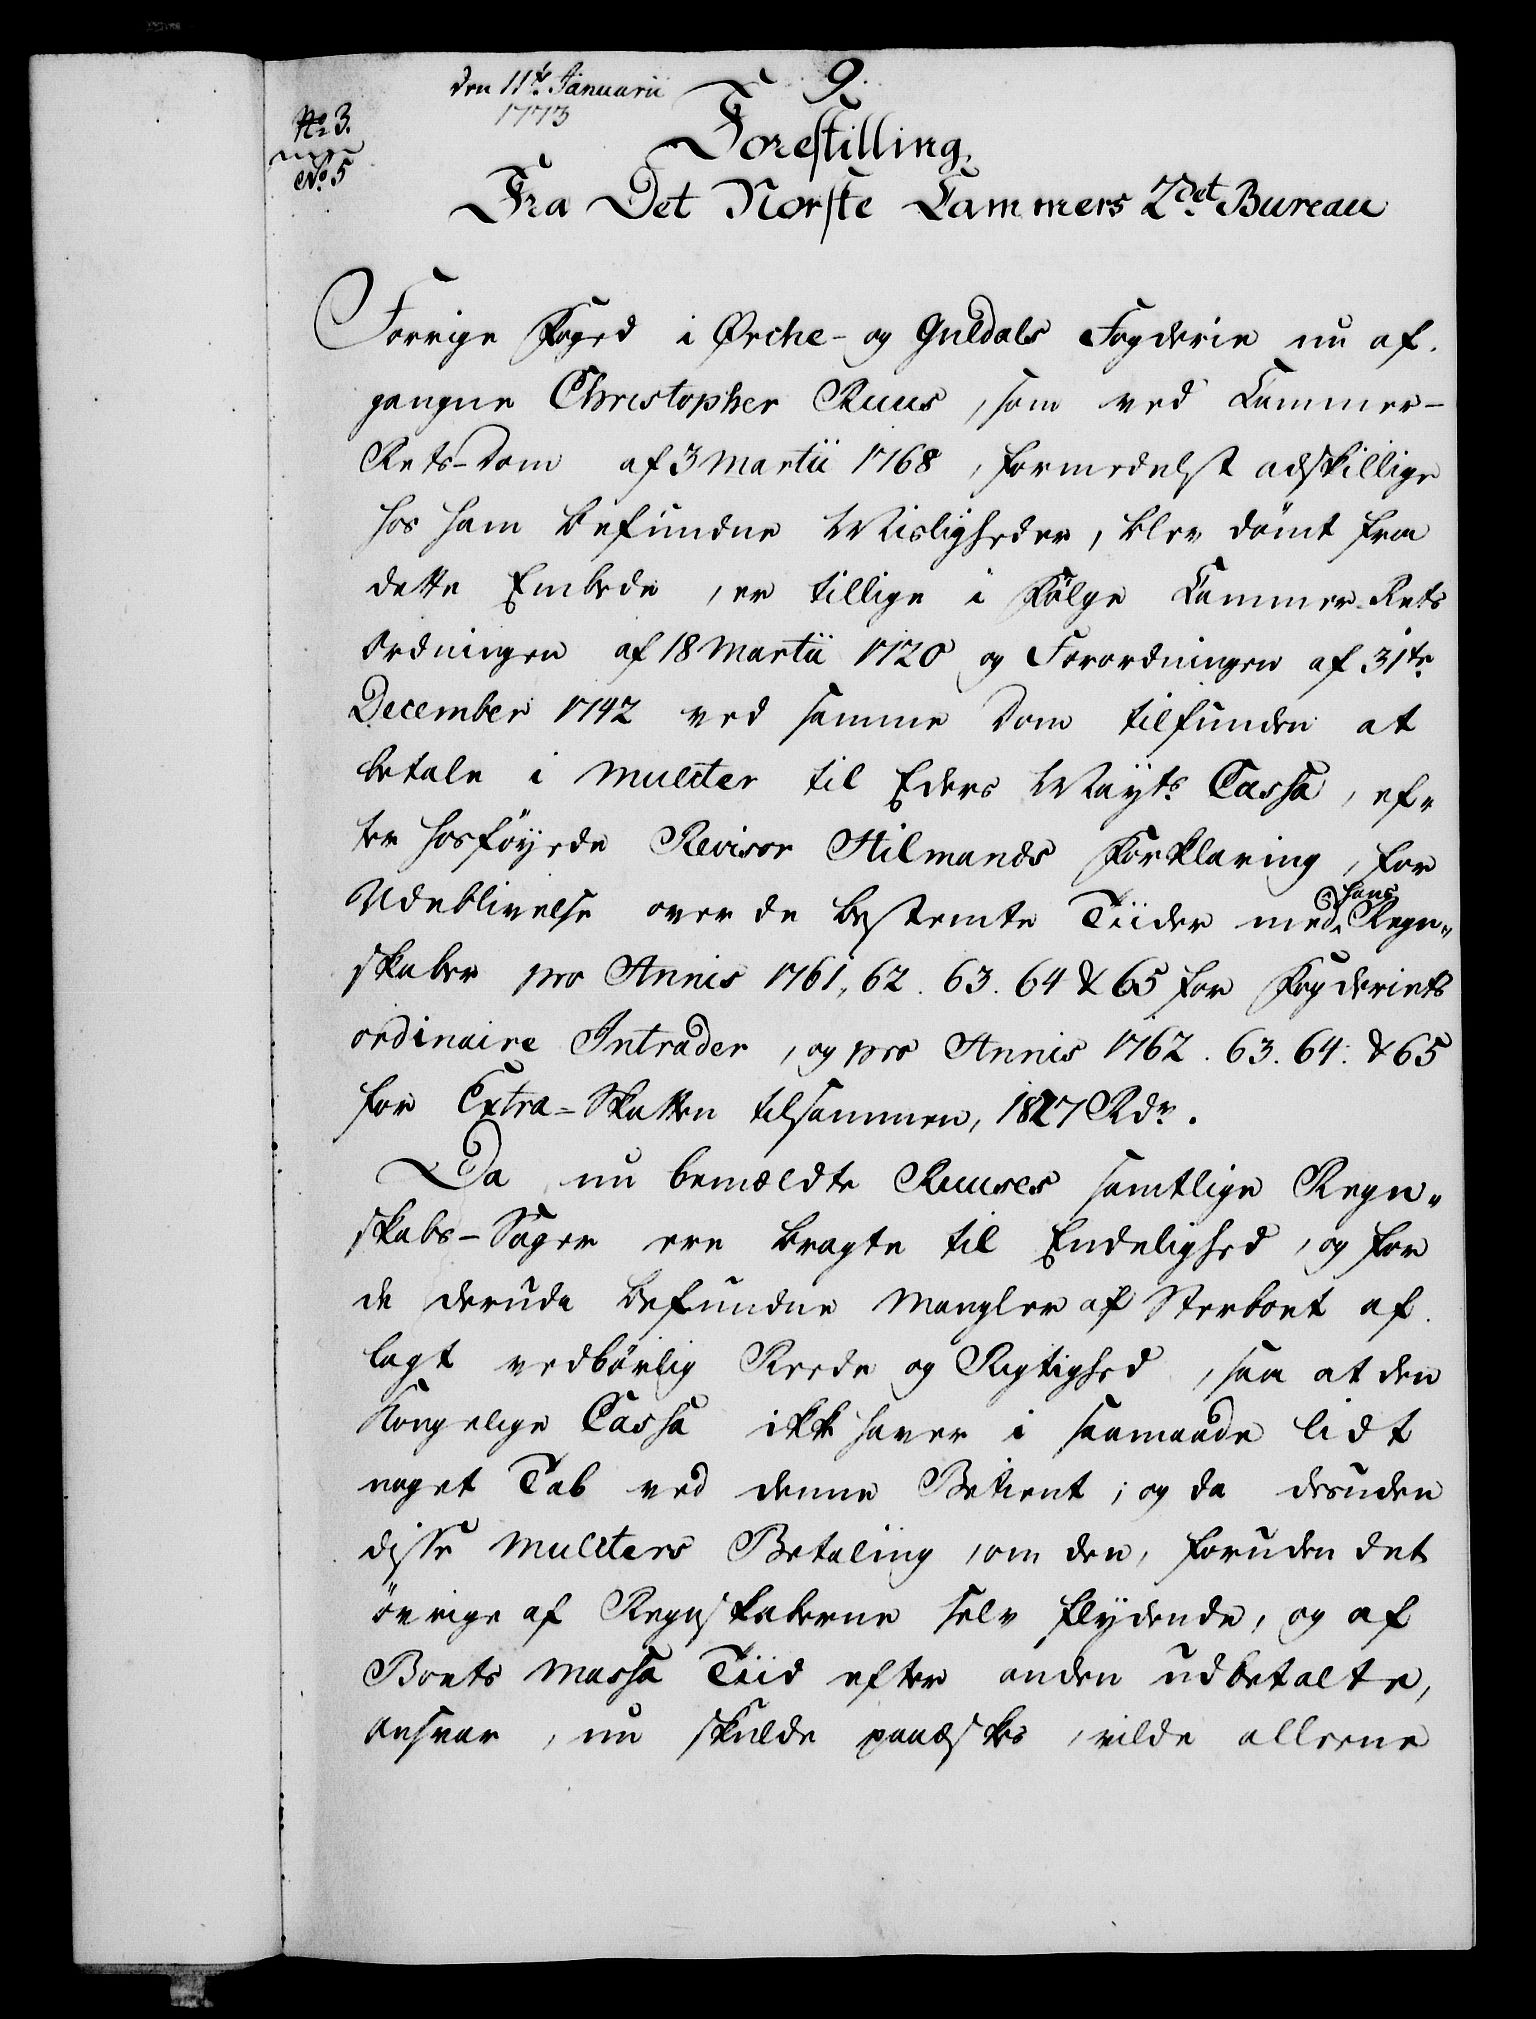 den 11te Januarii
1773
9.
No 3.
No 5
Forestilling.
Fra Det Norske Cammers 2det Bureau
Forrige Foged i Örche- og Guldals Fogderie nu af-
gangne Christopher Ruus, som ved Cammer-
Rets-Dom af 3 Martii 1768, formedelst adskillige
hos ham befundne Misligheder, blev dömt fra
dette Embede, er tillige i Fölge Cammer-Rets
Ordningen af 18 Martii 1720 og Forordningen af 31te
December 1742 ved samme Dom tilfunden at
betale i Mulcter til Eders Mayts Cassa, ef-
ter hosföyede Revisor Stilmands Forklaring, for
Udeblivelse over de bestemte Tiider med hans Regn-
skaber pro Annis 1761, 62. 63. 64 & 65 for Fogderiets
ordinaire Intrader, og pro Annis 1762. 63. 64. & 65
for Extra-Skatten tilsammen, 1827 Rdr.
Da nu bemeldte Ruuses samtlige Regn-
skabs-Sager ere bragte til Endelighed, og for
de derude befundne Mangler af Sterboet af-
lagt vedbörlig Reede og Rigtighed, saa at den
Kongelige Cassa ikke haver i saamaade lidt
noget Tab ved denne Betient; og da desuden
disse Mulcters Betaling, om den, foruden det
övrige af Regnskaberne selv flydende, og af
Boets Massa Tiid efter anden udbetalte,
Ansvar, nu skulde paaæskes, vilde alleene